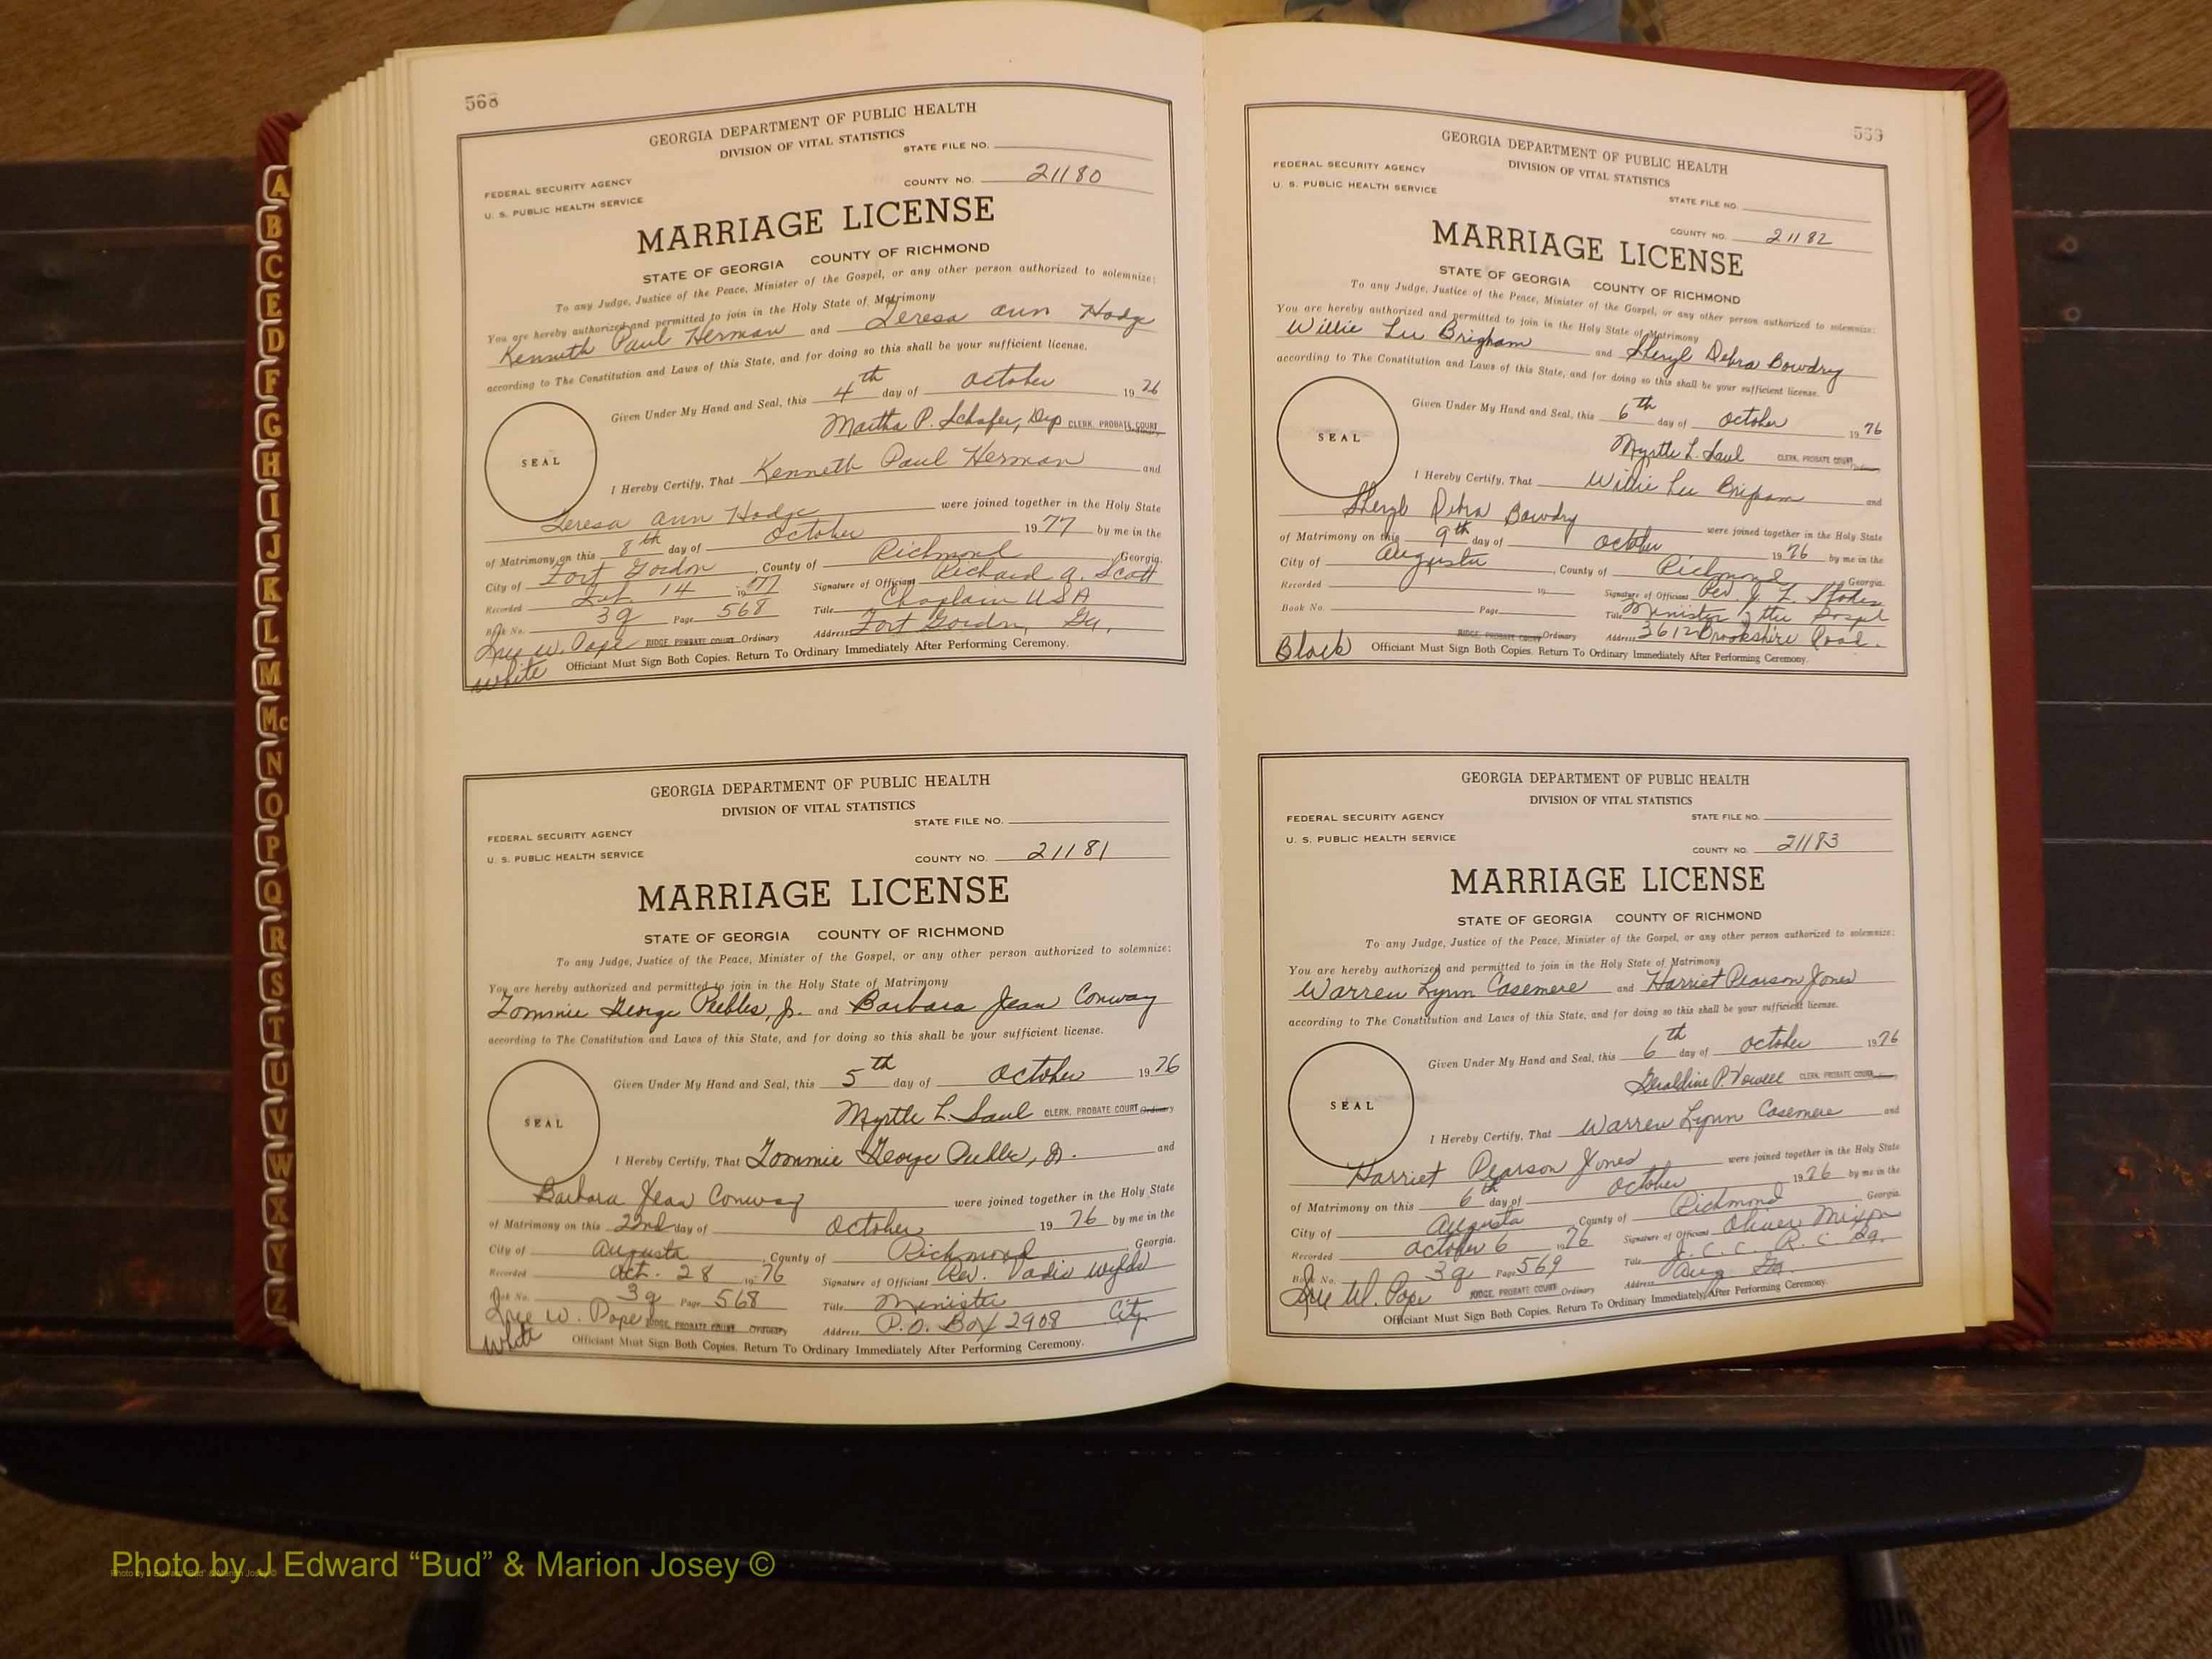 A
B
C
E
D
F
G
H
I
J
K
L
M
Mc
N
O
P
Q
R
S
T
U
V
W
X
Y
Z
568
GEORGIA DEPARTMENT OF PUBLIC HEALTH
DIVISION OF VITAL STATISTICS
STATE FILE NO.
FEDERAL SECURITY AGENCY
U. S. PUBLIC HEALTH SERVICE
COUNTY NO. 21180
MARRIAGE LICENSE
STATE OF GEORGIA COUNTY OF RICHMOND
To any Judge, Justice of the Peace, Minister of the Gospel, or any other person authorized to solemnize:
You are hereby authorized and permitted to join in the Holy State of Matrimony
Kenneth Paul Herman and Teresa Ann Hodge
according to The Constitution and Laws of this State, and for doing so this shall be your sufficient license.
Given Under My Hand and Seal, this 4th day of October 1976
Martha P. Schafer, Dep CLERK, PROBATE COURT Ordinary
SEAL
I Hereby Certify, That Kenneth Paul Herman and
Teresa Ann Hodge were joined together in the Holy State
of Matrimony on this 8th day of October 1977 by me in the
City of Fort Gordon, County of Richmond Georgia.
Recorded 14 1977 Signature of Officiant Richard A. Scott
Book No. 3q Page 568 Title Chaplain USA
W. Pope JUDGE, PROBATE COURT Ordinary Address Fort Gordon, Ga.
White Officiant Must Sign Both Copies. Return To Ordinary Immediately After Performing Ceremony.
GEORGIA DEPARTMENT OF PUBLIC HEALTH
DIVISION OF VITAL STATISTICS
STATE FILE NO.
FEDERAL SECURITY AGENCY
U. S. PUBLIC HEALTH SERVICE
COUNTY NO. 21181
MARRIAGE LICENSE
STATE OF GEORGIA COUNTY OF RICHMOND
To any Judge, Justice of the Peace, Minister of the Gospel, or any other person authorized to solemnize:
You are hereby authorized and permitted to join in the Holy State of Matrimony
Tommie George Peebles, Jr. and Barbara Jean Conway
according to The Constitution and Laws of this State, and for doing so this shall be your sufficient license.
Given Under My Hand and Seal, this 5th day of October 1976
Myrtle L. Saul CLERK, PROBATE COURT Ordinary
SEAL
I Hereby Certify, That Tommie George Peebles, Jr. and
Barbara Jean Conway were joined together in the Holy State
of Matrimony on this 22nd day of October 1976 by me in the
City of Augusta, County of Richmond Georgia.
Recorded Oct. 28 1976 Signature of Officiant Rev. Vadis Wylds
Book No. 3q Page 568 Title Minister
W. Pope JUDGE, PROBATE COURT Ordinary Address P.O. Box 2908 City
White Officiant Must Sign Both Copies. Return To Ordinary Immediately After Performing Ceremony.
569
GEORGIA DEPARTMENT OF PUBLIC HEALTH
DIVISION OF VITAL STATISTICS
FEDERAL SECURITY AGENCY
U. S. PUBLIC HEALTH SERVICE
STATE FILE NO.
COUNTY NO. 21182
MARRIAGE LICENSE
STATE OF GEORGIA COUNTY OF RICHMOND
To any Judge, Justice of the Peace, Minister of the Gospel, or any other person authorized to solemnize:
You are hereby authorized and permitted to join in the Holy State of Matrimony
Willie Lee Brigham and Sheryl Debra Bowdry
according to The Constitution and Laws of this State, and for doing so this shall be your sufficient license.
Given Under My Hand and Seal, this 6th day of October 1976
Myrtle L. Saul CLERK, PROBATE COURT Ordinary
SEAL
I Hereby Certify, That Willie Lee Brigham and
Sheryl Debra Bowdry were joined together in the Holy State
of Matrimony on this 9th day of October 1976 by me in the
City of Augusta, County of Richmond Georgia.
Recorded 19 Signature of Officiant Rev. J. L. Stokes
Book No. Page Title Minister of the Gospel
JUDGE, PROBATE COURT Ordinary Address 3612 Brookshire Road.
Black Officiant Must Sign Both Copies. Return To Ordinary Immediately After Performing Ceremony.
GEORGIA DEPARTMENT OF PUBLIC HEALTH
DIVISION OF VITAL STATISTICS
FEDERAL SECURITY AGENCY
STATE FILE NO.
U. S. PUBLIC HEALTH SERVICE
COUNTY NO. 21183
MARRIAGE LICENSE
STATE OF GEORGIA COUNTY OF RICHMOND
To any Judge, Justice of the Peace, Minister of the Gospel, or any other person authorized to solemnize:
You are hereby authorized and permitted to join in the Holy State of Matrimony
Warren Lynn Casemere and Harriet Pearson Jones
according to The Constitution and Laws of this State, and for doing so this shall be your sufficient license.
Given Under My Hand and Seal, this 6th day of October 1976
Geraldine P. Vowell CLERK, PROBATE COURT Ordinary
SEAL
I Hereby Certify, That Warren Lynn Casemere and
Harriet Pearson Jones were joined together in the Holy State
of Matrimony on this 6th day of October 1976 by me in the
City of Augusta County of Richmond Georgia.
Recorded October 6 1976 Signature of Officiant Oliver Mixon
Book No. 3q Page 569 Title J. C. C. R. C Ga.
W. Pope JUDGE, PROBATE COURT Ordinary Address Aug Ga.
Officiant Must Sign Both Copies. Return To Ordinary Immediately After Performing Ceremony.
Photo by J Edward “Bud” & Marion Josey ©
Photo by J Edward "Bud" & Marion Josey ©